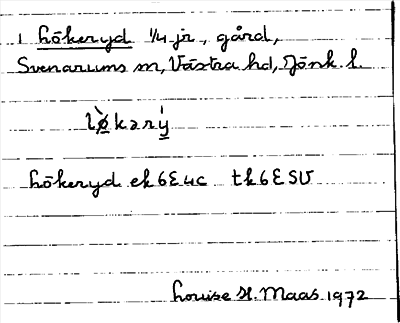 1 Lökeryd 1/4 jr, gård,
Svenarums sn, Västra hd, Jönk. l.
lø̀kərý
Lökeryd ek 6E4c tk 6E SV
Louise H. Maas 1972